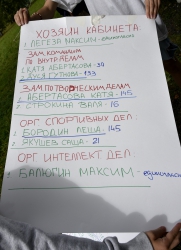 ХОЗЯИН КАБИНЕТА
1. ЛЕГЕЗА МАКСИМ - единогласно
ЗАМ. КОМАНДИРА
ПО ВНУТР. ДЕЛАМ
1. КАТЯ АБЕРТАСОВА - 34
2. ДУСЯ ГУТНОВА - 133
ЗАМ. ПО ТВОРЧЕСКИМ ДЕЛАМ
1. АБЕРТАСОВА КАТЯ - 145
2. СТРОКИНА ВАЛЯ - 16
ОРГ СПОРТИВНЫХ ДЕЛ:
1. БОРОДИН ЛЕША - 145
2. ЯКУШЕВ САША - 21
ОРГ ИНТЕЛЛЕКТ ДЕЛ:
БАЛЮГИН МАКСИМ - единогласно